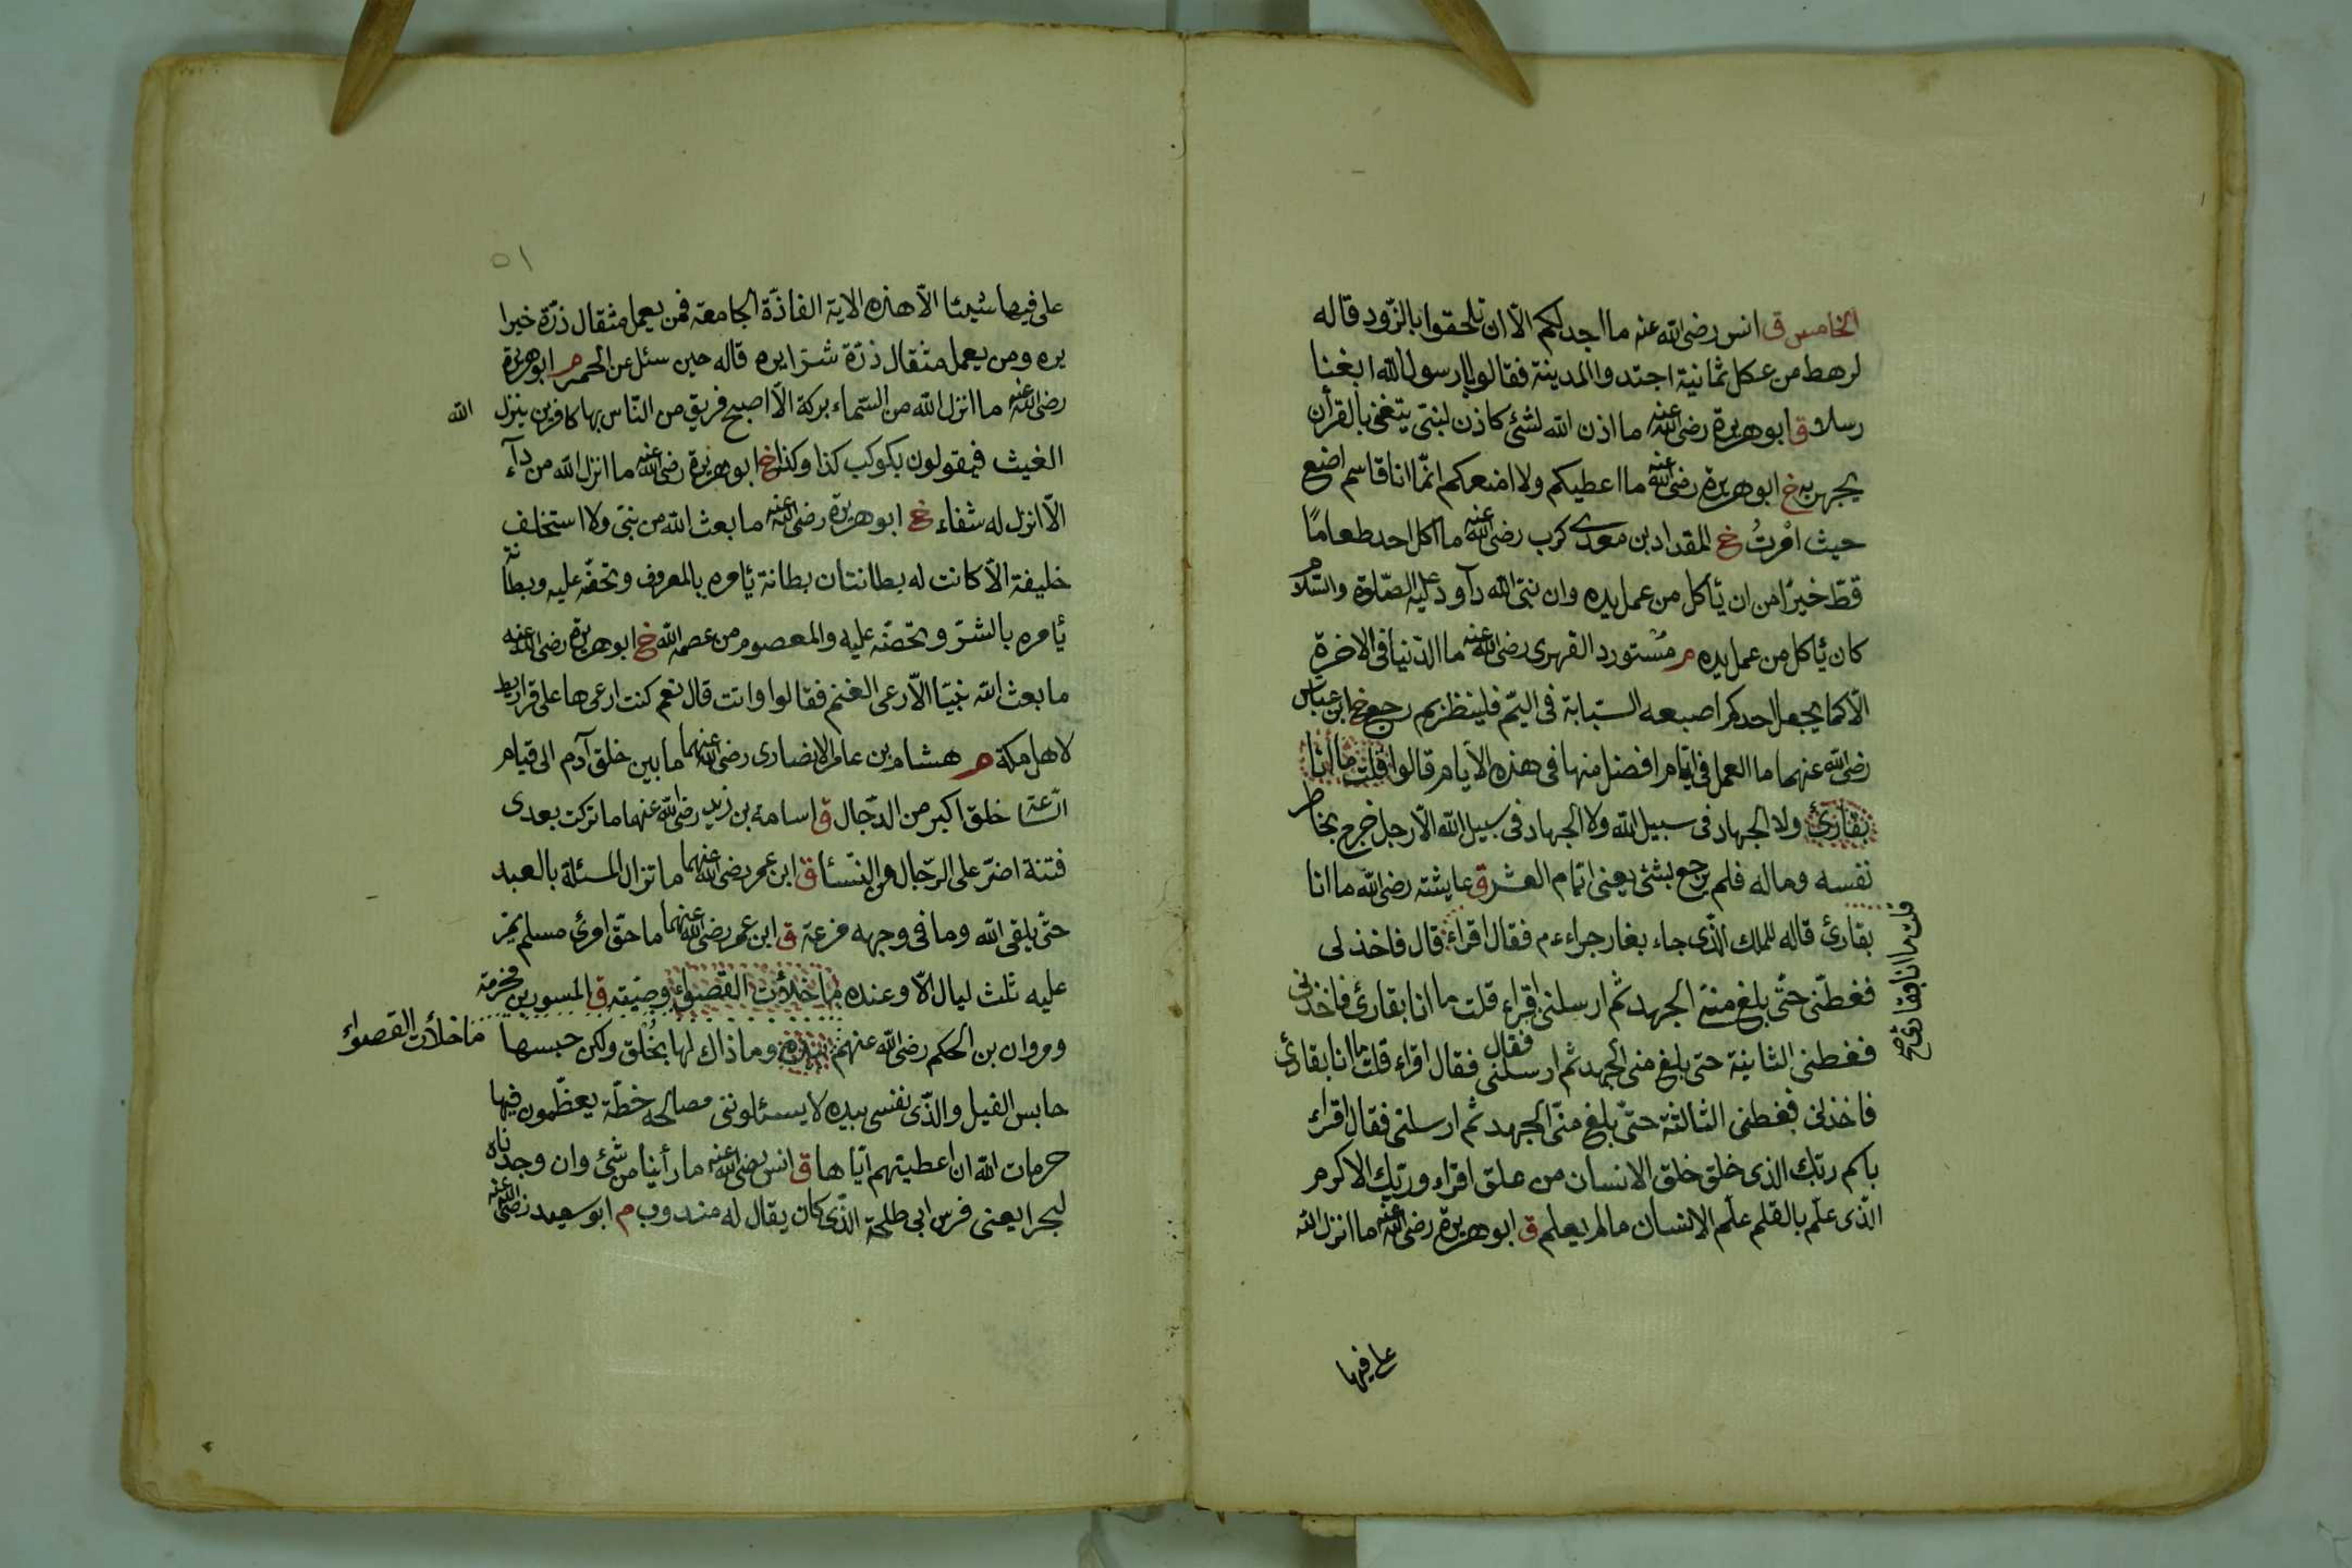 الخامس ق انس رضى الله عنه ما اجد لكم الّا ان تلحقوا بالزّود قاله
لرهط من عكل ثمانية اجتدوا المدينة فقالوا يا رسول الله ابغنا
رسلا ق ابو هريرة رضى الله عنه ما اذن الله لشئ كاذن لنبىّ يتغنى بالقرآن
يجهر به خ ابو هريرة رضى الله عنه ما اعطيكم ولا امنعكم انّما انا قاسم اضع
حيث امرتُ خ المقداد بن معدى كرب رضى الله عنه ما اكل احد طعامًا
قطّ خيرًا من ان يأكل من عمل يده وان نبىّ الله دآود عليه الصّلوة والسّلام
كان يأكل من عمل يده م مُستورد الفهرى رضى الله عنه ما الدّنيا فى الاخرة
الّا كما يجعل احدكم اصبعه السبّابة فى اليمّ فلينظر بم رجع خ ابن عباس
رضى الله عنهما ما العمل فى ايّام افضل منها فى هذه الأيام قالوا قلت ما انا
بقارئ ولا الجهاد فى سبيل الله ولا الجهاد فى سبيل الله الّا رجل خرج يخاطر
نفسه وماله فلم يرجع بشئ يعنى ايّام العشر ق عايشة رضى الله ما انا
بقارئ قاله للملك الّذى جاء بغار حراء فقال اقراء قال فاخذنى
فغطّنى حتّى بلغ منىّ الجهد ثم ارسلنى اقراء قلت ما انا بقارئ فاخذنى
فغطنى الثانية حتى بلغ منى الجهد ثم ارسلنى فقال فقال اقراء قلت ما انا بقارئ
فاخذنى فغطنى الثالثة حتّى بلغ منّى الجهد ثم ارسلنى فقال اقراء
باسم ربّك الذى خلق خلق الانسان من علق اقراء وربّك الاكرم
الّذى علّم بالقلم علّم الانسان مالم يعلم ق ابو هريرة رضى الله عنه ما انزل الله
قلت ما انا بقارئ صح
على فيها
٥١
على فيها شيئا الّا هذه الاية الفاذّة الجامعة فمن يعمل مثقال ذرّة خيرا
يره ومن يعمل مثقال ذرّة شرّا يره قاله حين سئل عن الحمر م ابو هريرة
رضى الله عنه ما انزل الله من السّماء بركة الّا اصبح فريق من النّاس بها كافرين ينزل
الله
الغيث فيقولون بكوكب كذا وكذا خ ابو هريرة رضى الله عنه ما انزل الله من دآء
الّا انزل له شفاء خ ابو هريرة رضى الله عنه ما بعث الله من نبىّ ولا استخلف
خليفة الّا كانت له بطانتان بطانة يأمره بالمعروف وتحضّه عليه وبطانة
يأمره بالشرّ وتحضّه عليه والمعصوم من عصمه الله خ ابو هريرة رضى الله عنه
ما بعث الله نبيّا الّا رعى الغنم فقالوا وانت قال نعم كنت ارعى ها على قراريط
لاهل مكة م هشام بن عامر الانصارى رضى الله عنهما ما بين خلق آدم الى قيام
السّاعة خلق اكبر من الدّجال ق اسامة بن زيد رضى الله عنهما ما تركت بعدى
فتنة اضرّ على الرّجال من النّساء ق ابن عمر رضى الله عنهما ما تزال المسئلة بالعبد
حتّى يلقى الله وما فى وجهه مزعة ق ابن عمر رضى الله عنهما ما حقّ امرئ مسلم يمرّ
عليه ثلث ليال الّا وعنده ما خلأت القصواء وصيّته ق المسور بن مخرمة
ومروان بن الحكم رضى الله عنهم وما ذاك لها بخُلق ولكن حبسها
ما خلأت القصواء
حابس الفيل والّذى نفسى بيده لا يسئلوننى مصالحه خطّة يعظّمون فيها
حرمات الله ان اعطيتهم ايّاها ق انس رضى الله عنه ما رأينا من شئ وان وجدناه
لبحرا يعنى فرس ابى طلحة الّذى كان يقال له مندوب م ابو سعيد رضى الله عنه